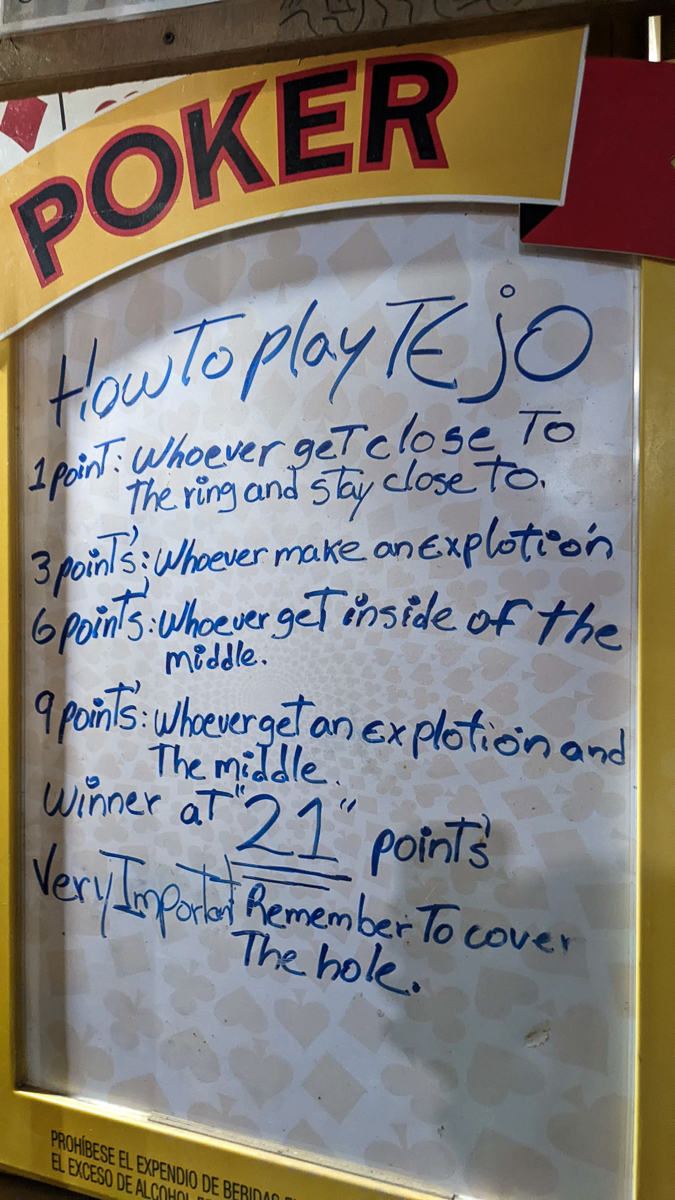 POKER
How To play TEjO
1 poinT: Whoever geT close To
The ring and sTay close To.
3 poinTs': Whoever make an Explotión
6 poinTs': Whoever geT inside of the
middle.
9 poinTs': Whoever get an explotion and
The middle.
Winner aT "21" poinTs'
Very ImporTant Remember To cover
The hole.
PROHÍBESE EL EXPENDIO DE BEBIDAS
EL EXCESO DE ALCOHOL